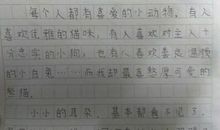 每个人都有喜爱的小动物。有人
喜欢优雅的猫咪，有人喜欢对主人十
分忠实的小狗，也有人喜欢温
的小白兔……而我却最喜憨厚可爱的
熊猫。
小小的耳朵，基本都看不见了